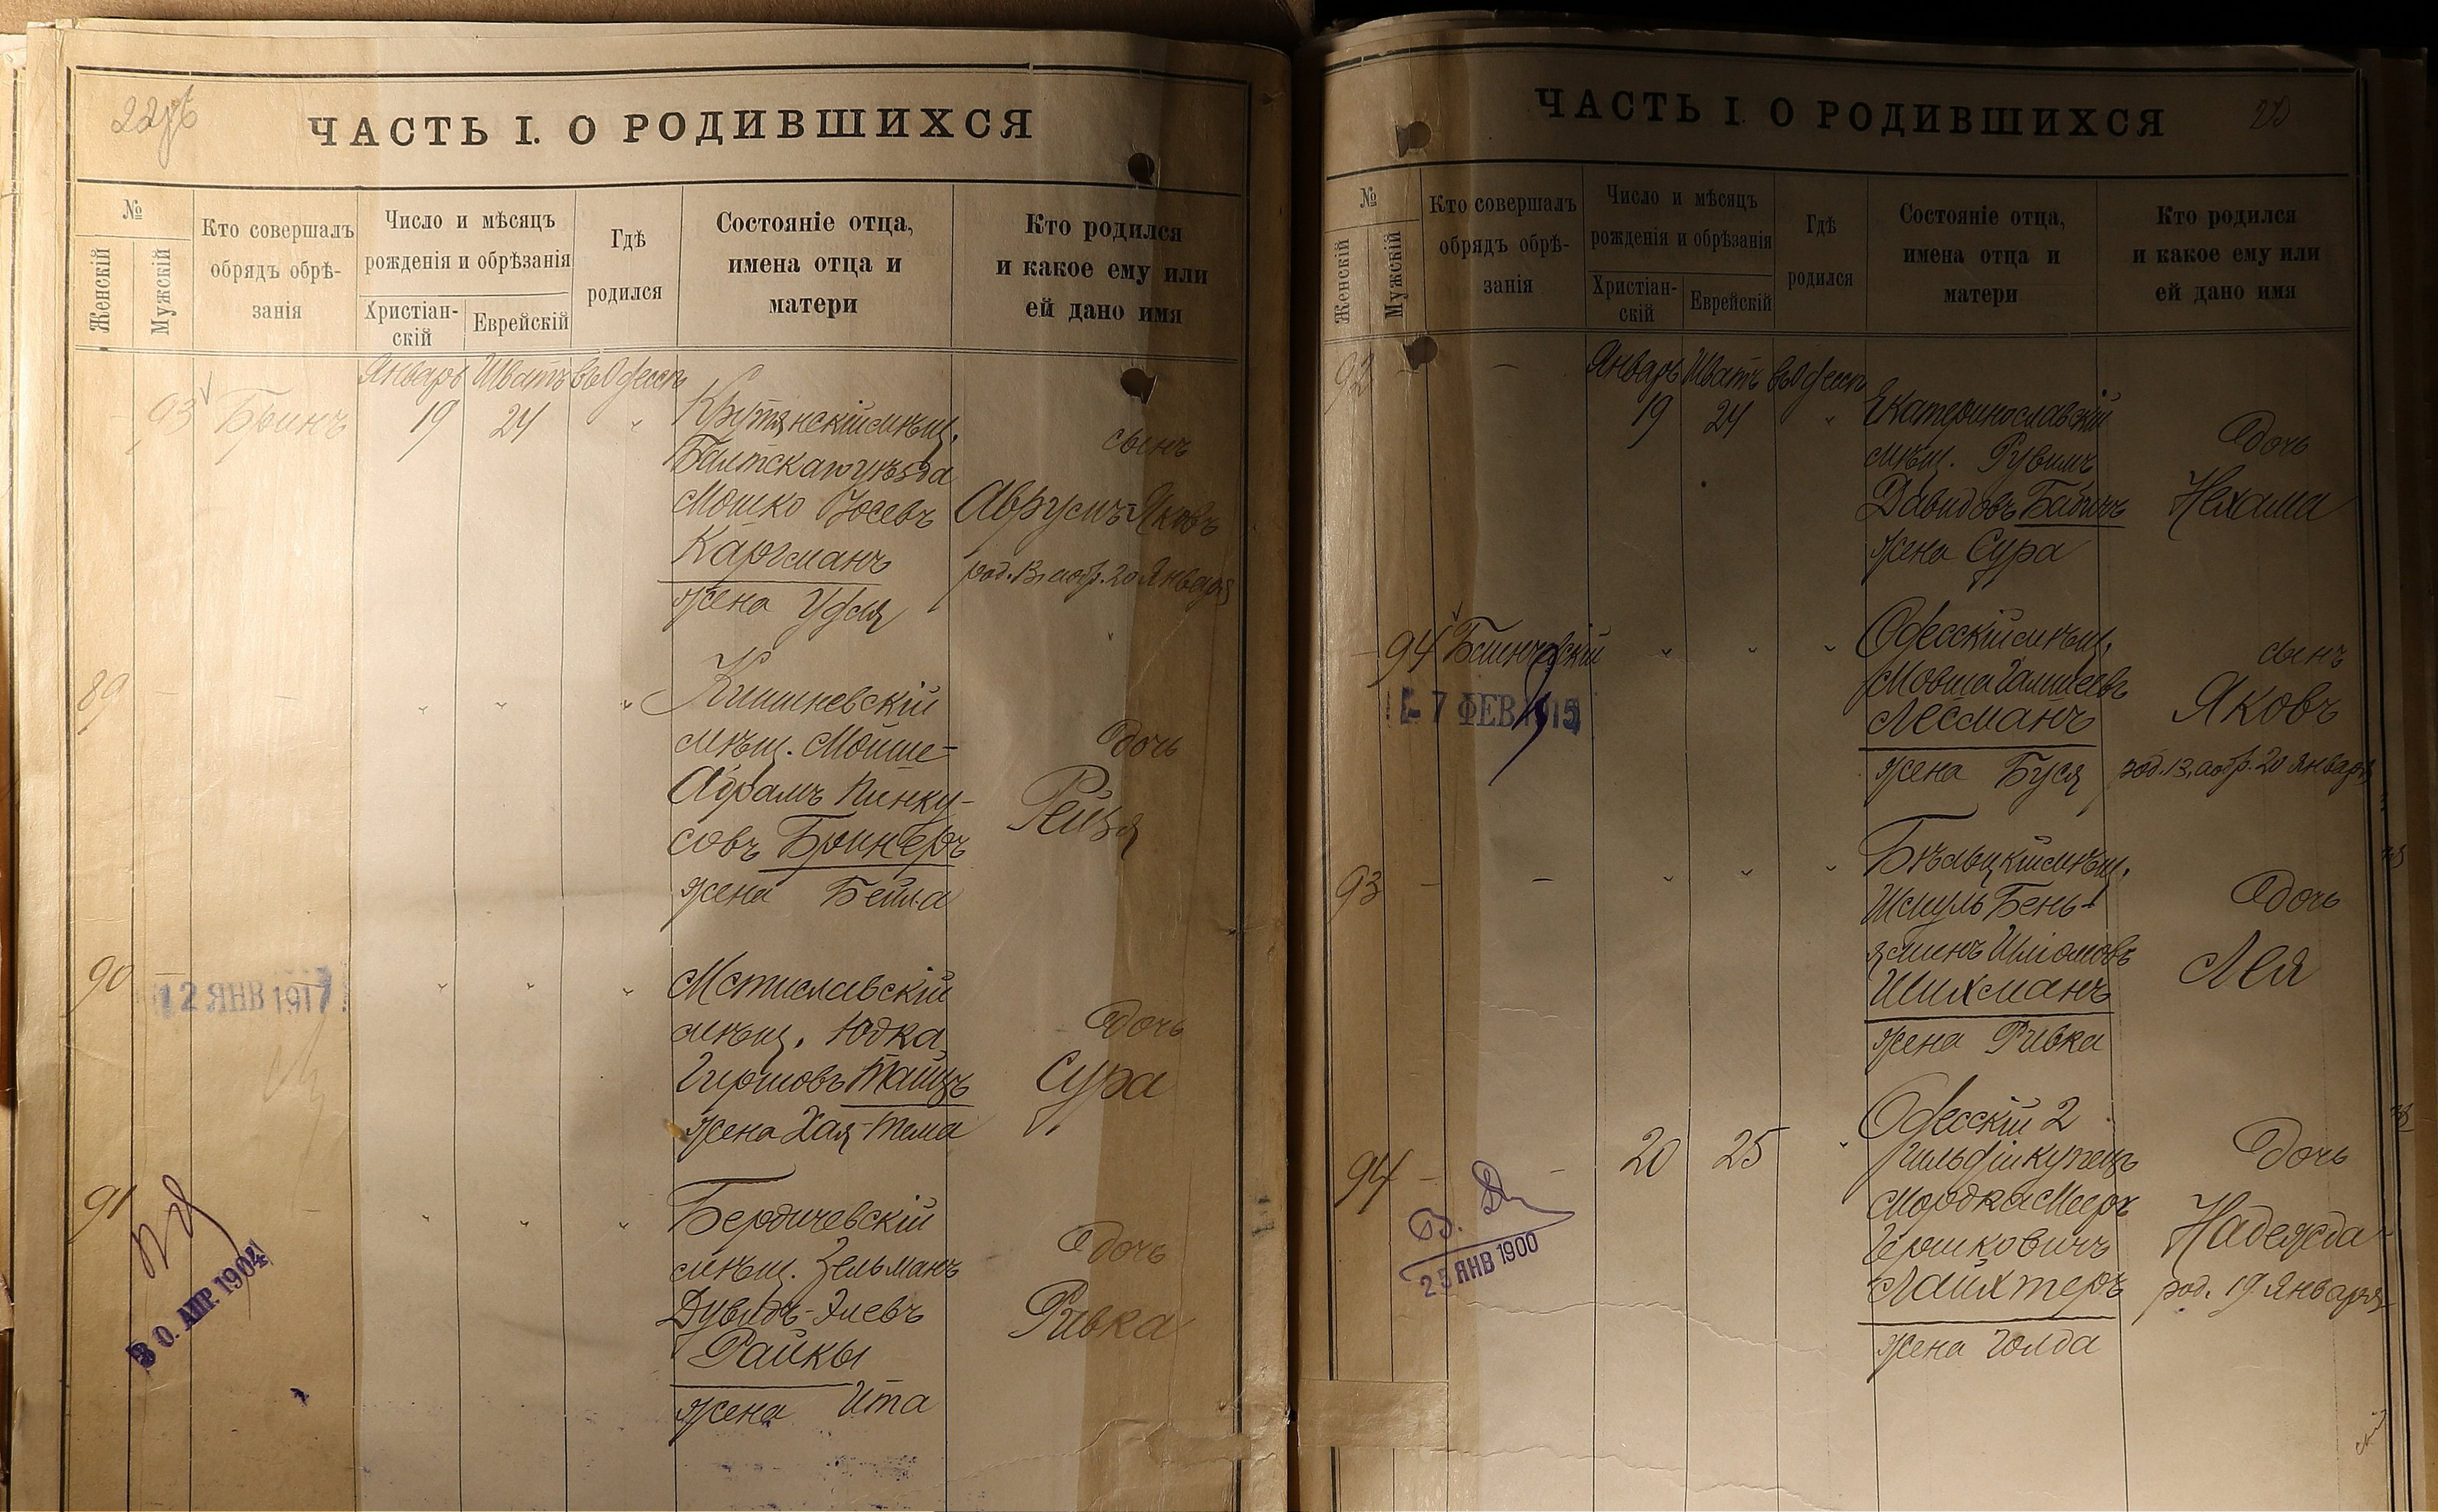 ЧАСТЬ I. О РОДИВШИХСЯ
№
Женскій
Мужскій
Кто совершалъ
обрядъ обрѣ-
занія
Число и мѣсяцъ
рожденія и обрѣзанія
Христіан-
скій
Еврейскій
Гдѣ
родился
Состояніе отца,
имена отца и
матери
Кто родился
и какое ему или
ей дано имя
Январь Шватъ въ Одессѣ
93 Бринъ 19 24
Крутянскій мѣщ.
Балтскаго уѣзда
Мошко Іосевъ
Каргманъ
жена Удля
сынъ
Аврумъ-Яковъ
род. 13, а обр. 20 Января
89
Кишиневскій
мѣщ. Мойше-
Абрамъ Пинку-
совъ Бринберъ
жена Бейла
дочь
Рейзя
90
12 ЯНВ 1917
Мстиславскій
мѣщ. Юдка
Гиршовъ Тайцъ
жена Хая-Тема
дочь
Сура
91
30. АПР. 1904
Бердичевскій
мѣщ. Зельманъ
Дувидъ-Элевъ
Райкы
жена Ита
дочь
Ривка
ЧАСТЬ I. О РОДИВШИХСЯ
№
Женскій
Мужскій
Кто совершалъ
обрядъ обрѣ-
занія
Число и мѣсяцъ
рожденія и обрѣзанія
Христіан-
скій
Еврейскій
Гдѣ
родился
Состояніе отца,
имена отца и
матери
Кто родился
и какое ему или
ей дано имя
Январь Шватъ въ Одессѣ
92 19 24
Екатеринославскій
мѣщ. Рувимъ
Давидовъ Бабичъ
жена Сура
дочь
Нехама
94
7 ФЕВ 1915
Одесскій мѣщ.
Мовша
Лесманъ
жена Буся
сынъ
Яковъ
род. 13, а обр. 20 Января
93
Бѣльцкій мѣщ.
Шмуль Бень-
яминъ Шліомовъ
Шихманъ
жена Ривка
дочь
Лея
94 20 25
25 ЯНВ 1900
Одесскій 2
гильдіи купецъ
Мордка Мееръ
Гершковичъ
Лайхтеръ
жена Голда
дочь
Надежда
род. 19 Января